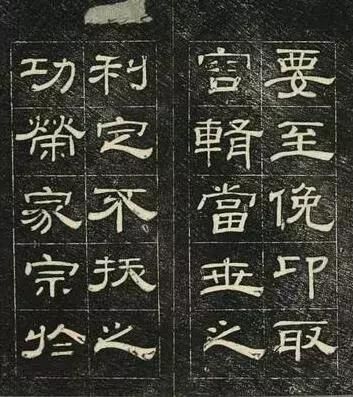 要至俛卬取
容輯當世之
利定不拔之
功榮家宗於